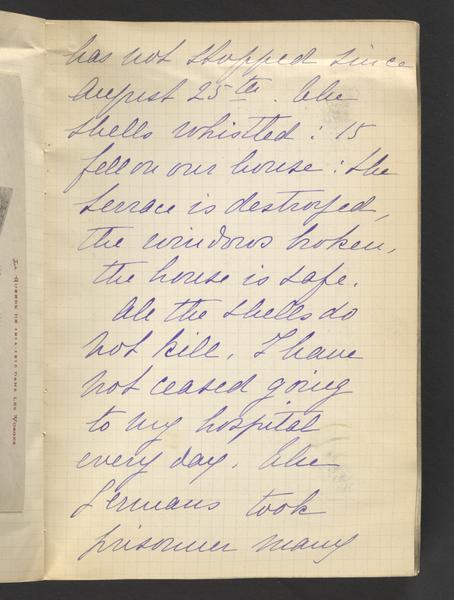 has not stopped since
August 25th. The
shells whistled : 15
fell on our house : the
terrace is destroyed,
the windows broken,
the house is safe.
All the shells do
not kill. I have
not ceased going
to my hospital
every day. The
Germans took
prisonner many
LA GUERRE DE 1914-1915 DANS LES VOSGES